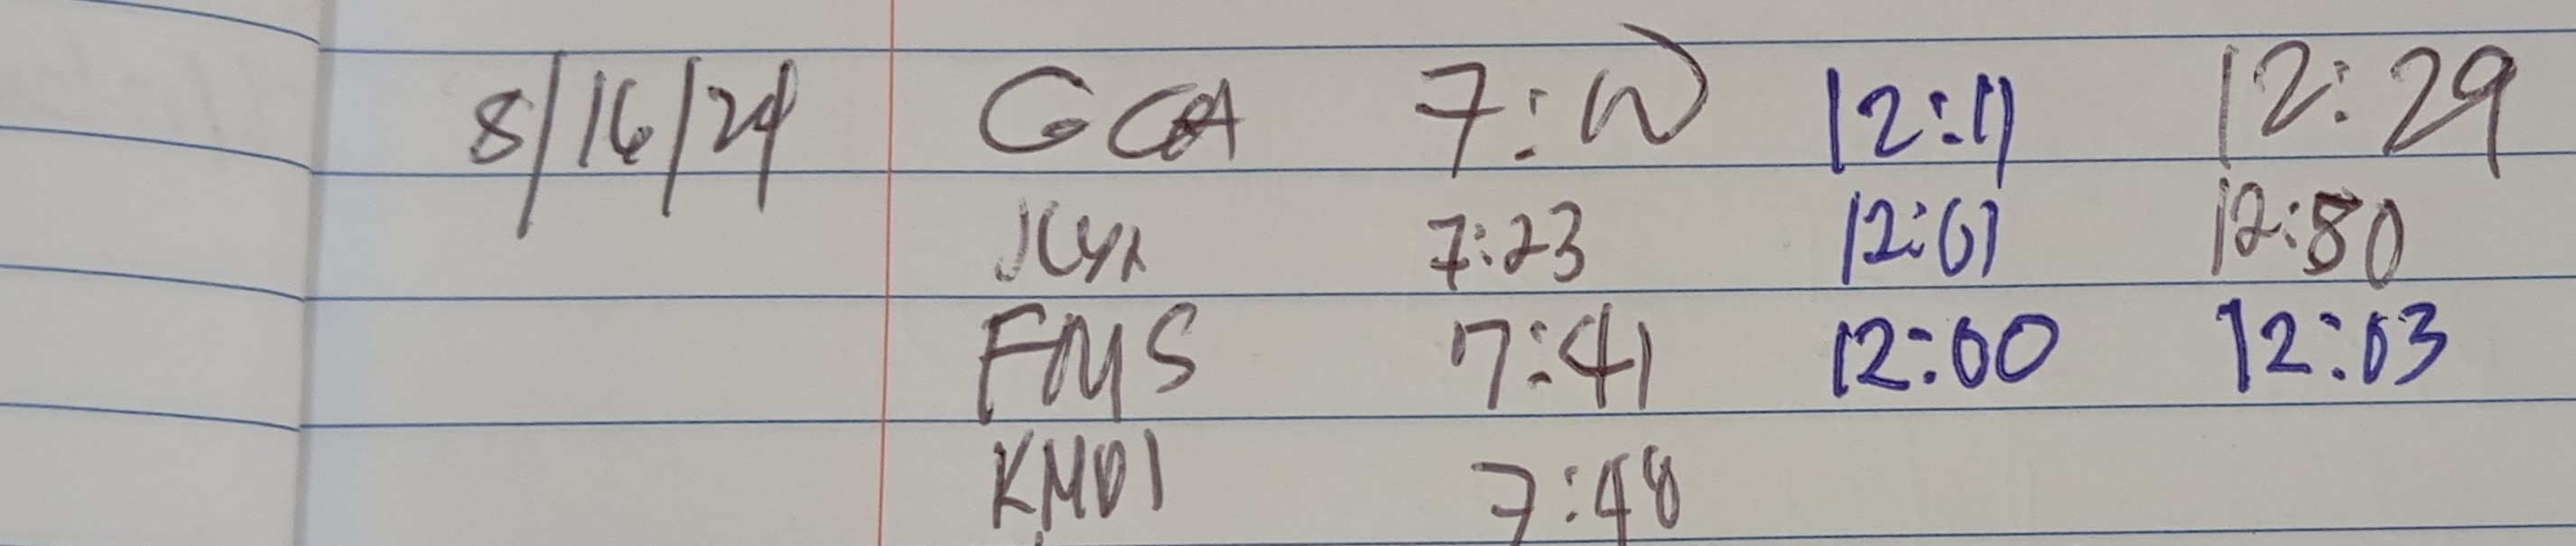 8/16/24 GCA 7:10 12:11 12:29
7:23 12:01 12:50
FMS 7:41 12:00 12:03
KMDI 7:48